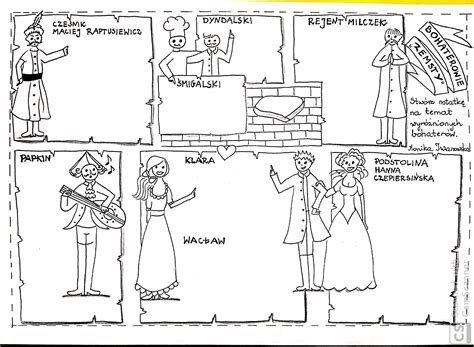 CZEŚNIK
MACIEJ RAPTUSIEWICZ
DYNDALSKI
ŚMIGALSKI
REJENT MILCZEK
BOHATEROWIE
"ZEMSTY"
Stwórz notatkę
na temat
wyróżnionych
bohaterów.
Monika Iwanowska
PAPKIN
KLARA
WACŁAW
PODSTOLINA
HANNA
CZEPIERSIŃSKA
CS CamScanner